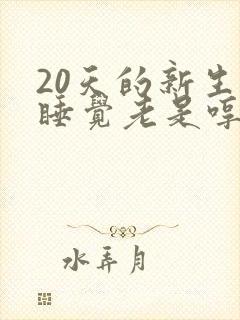 20天的新生
睡觉老是哼
水弄月